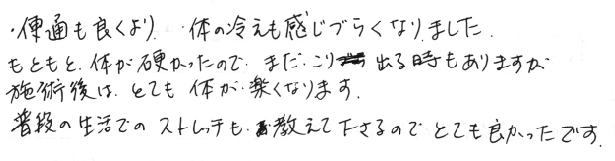 ・便通も良くより、・体の冷えも感じづらくなりました。
もともと、体が硬かったので、まだ、こり出る時もありますが、
施術後は、とても 体が 楽くなります。
普段の生活での ストレッチも、教えて下さるので とても良かったです。